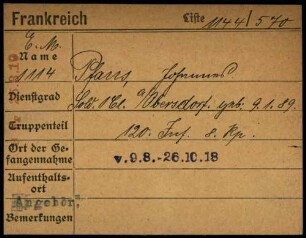 Frankreich Liste 1144/570
E. M.
1114
Name Pfans Johannes
Dienstgrad Sold. 1 Cl. a/Obersdorf geb. 9.1.89.
Truppenteil 120. Inf. 8. Kp.
Ort der Gefangennahme v. 9.8.-26.10.18
Aufenthaltsort
Angehör.
Bemerkungen